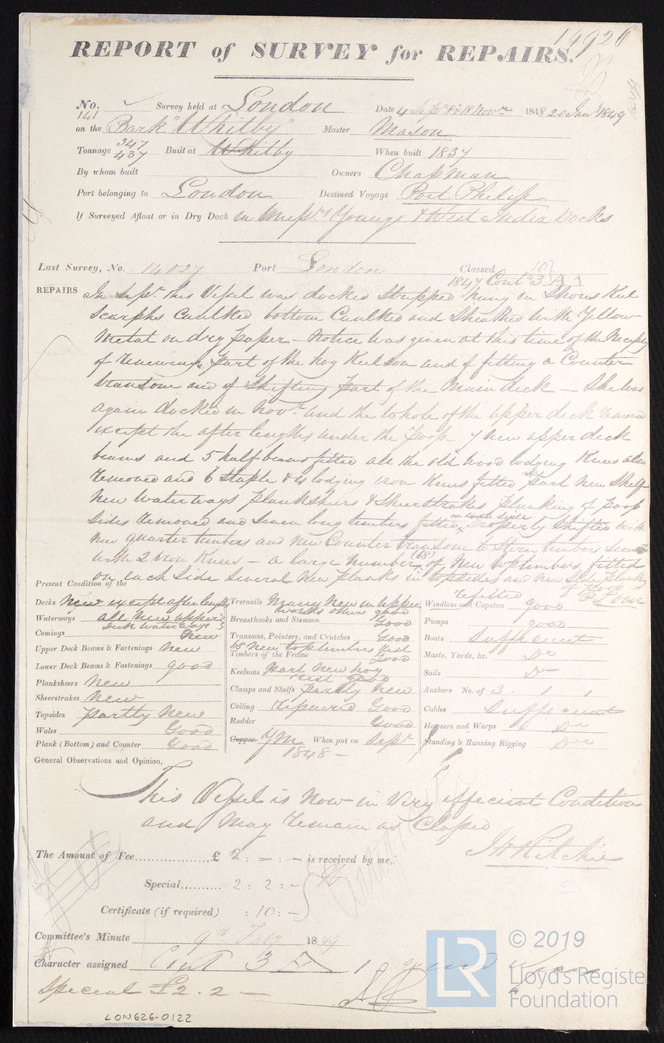 14920
REPORT of SURVEY for REPAIRS.
No. 141 Survey held at London Date 4 Sept & 18 Novr 1848 20 Jany 1849
on the Bark "Whitby" Master Mason
Tonnage 347 437 Built at Whitby When built 1837
By whom built Owners Chapman
Port belonging to London Destined Voyage Port Philip
If Surveyed Afloat or in Dry Dock in Messrs Youngs & West India Docks
Last Survey, No. 14027 Port London Classed
1847 Cont 3 A 1
REPAIRS In Sept. this Vessel was docked Stripped hung in Shores Keel
Scarphs Caulked bottom Caulked and Sheathed with Yellow
Metal on dry paper – Notice was given at this time of the Necessity
of renewing part of the hog Keelson and of fitting a Counter
transom and of Shifting part of the Main deck – She was
again docked in Novr and the whole of the upper deck
except the after lengths under the poop – 7 New upper deck
beams and 5 half beams fitted all the old wood lodging Knees also
removed and 6 Staple & 4 lodging iron Knees fitted part new Shelf
New Waterways plansheers & Sheerstrakes planking of poop
Sides removed and Seven long timbers fitted on each Side properly Shifted with
new quarter timbers and new Counter transom & Stern timbers
with 2 iron Knees – a large number of New toptimbers fitted
on each Side Several New planks in topsides and new
refitted
Present Condition of the
Decks New except after lengths
Waterways all New upper
Deck waterways
Comings New
Upper Deck Beams & Fastenings New
Lower Deck Beams & Fastenings good
Planksheers New
Sheerstrakes New
Topsides partly New
Wales Good
Plank (Bottom) and Counter Good
Treenails Many New in upper
works others good
Breasthooks and Stemson Good
Transoms, Pointers, and Crutches Good
65 New toptimbers rest
Timbers of the Frame Good
Keelsons part New hog
rest good
Clamps and Shelfs partly New
Ceiling repaired Good
Rudder Good
Copper YM When put on Sept.
1848 –
Windlass and Capstan good
Pumps good
Boats Sufficient
Masts, Yards, &c. Do
Sails Do
Anchors No. of 3 . 1 . 1
Cables Sufficient
Hawsers and Warps Do
Standing & Running Rigging Do
General Observations and Opinion,
This Vessel is Now in Very efficient Condition
and May remain as Classed
The Amount of Fee............£ 2 : – : – is received by me,
J H Ritchie
Special...... 2 : 2 : –
Certificate (if required) : 10 : –
Committee's Minute 9th Feby 1849
Character assigned Cont 3 A 1
Special £2.2 –
LON626-0122
LR
© 2019
Lloyd's Register
Foundation